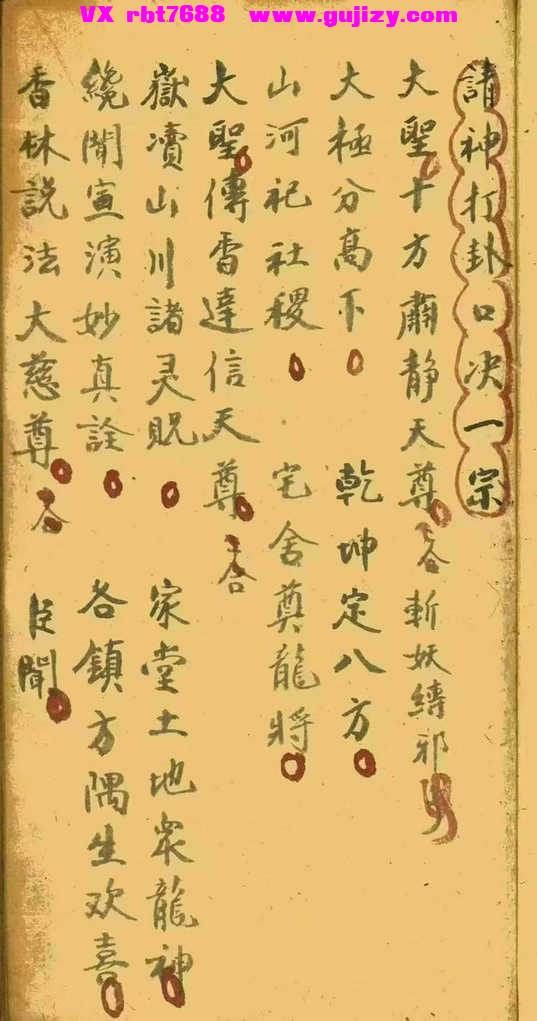 VX rbt7688 www.gujizy.com
請神打卦口决一宗
大聖十方肅静天尊 斬妖縛邪
大極分高下 乾坤定八方
山河祀社稷 宅舍奠龍將
大聖傳香達信天尊
嶽瀆山川諸灵貺 家堂土地衆龍神
纔聞宣演妙真詮 各鎮方隅生欢喜
香林説法大慈尊 臣聞